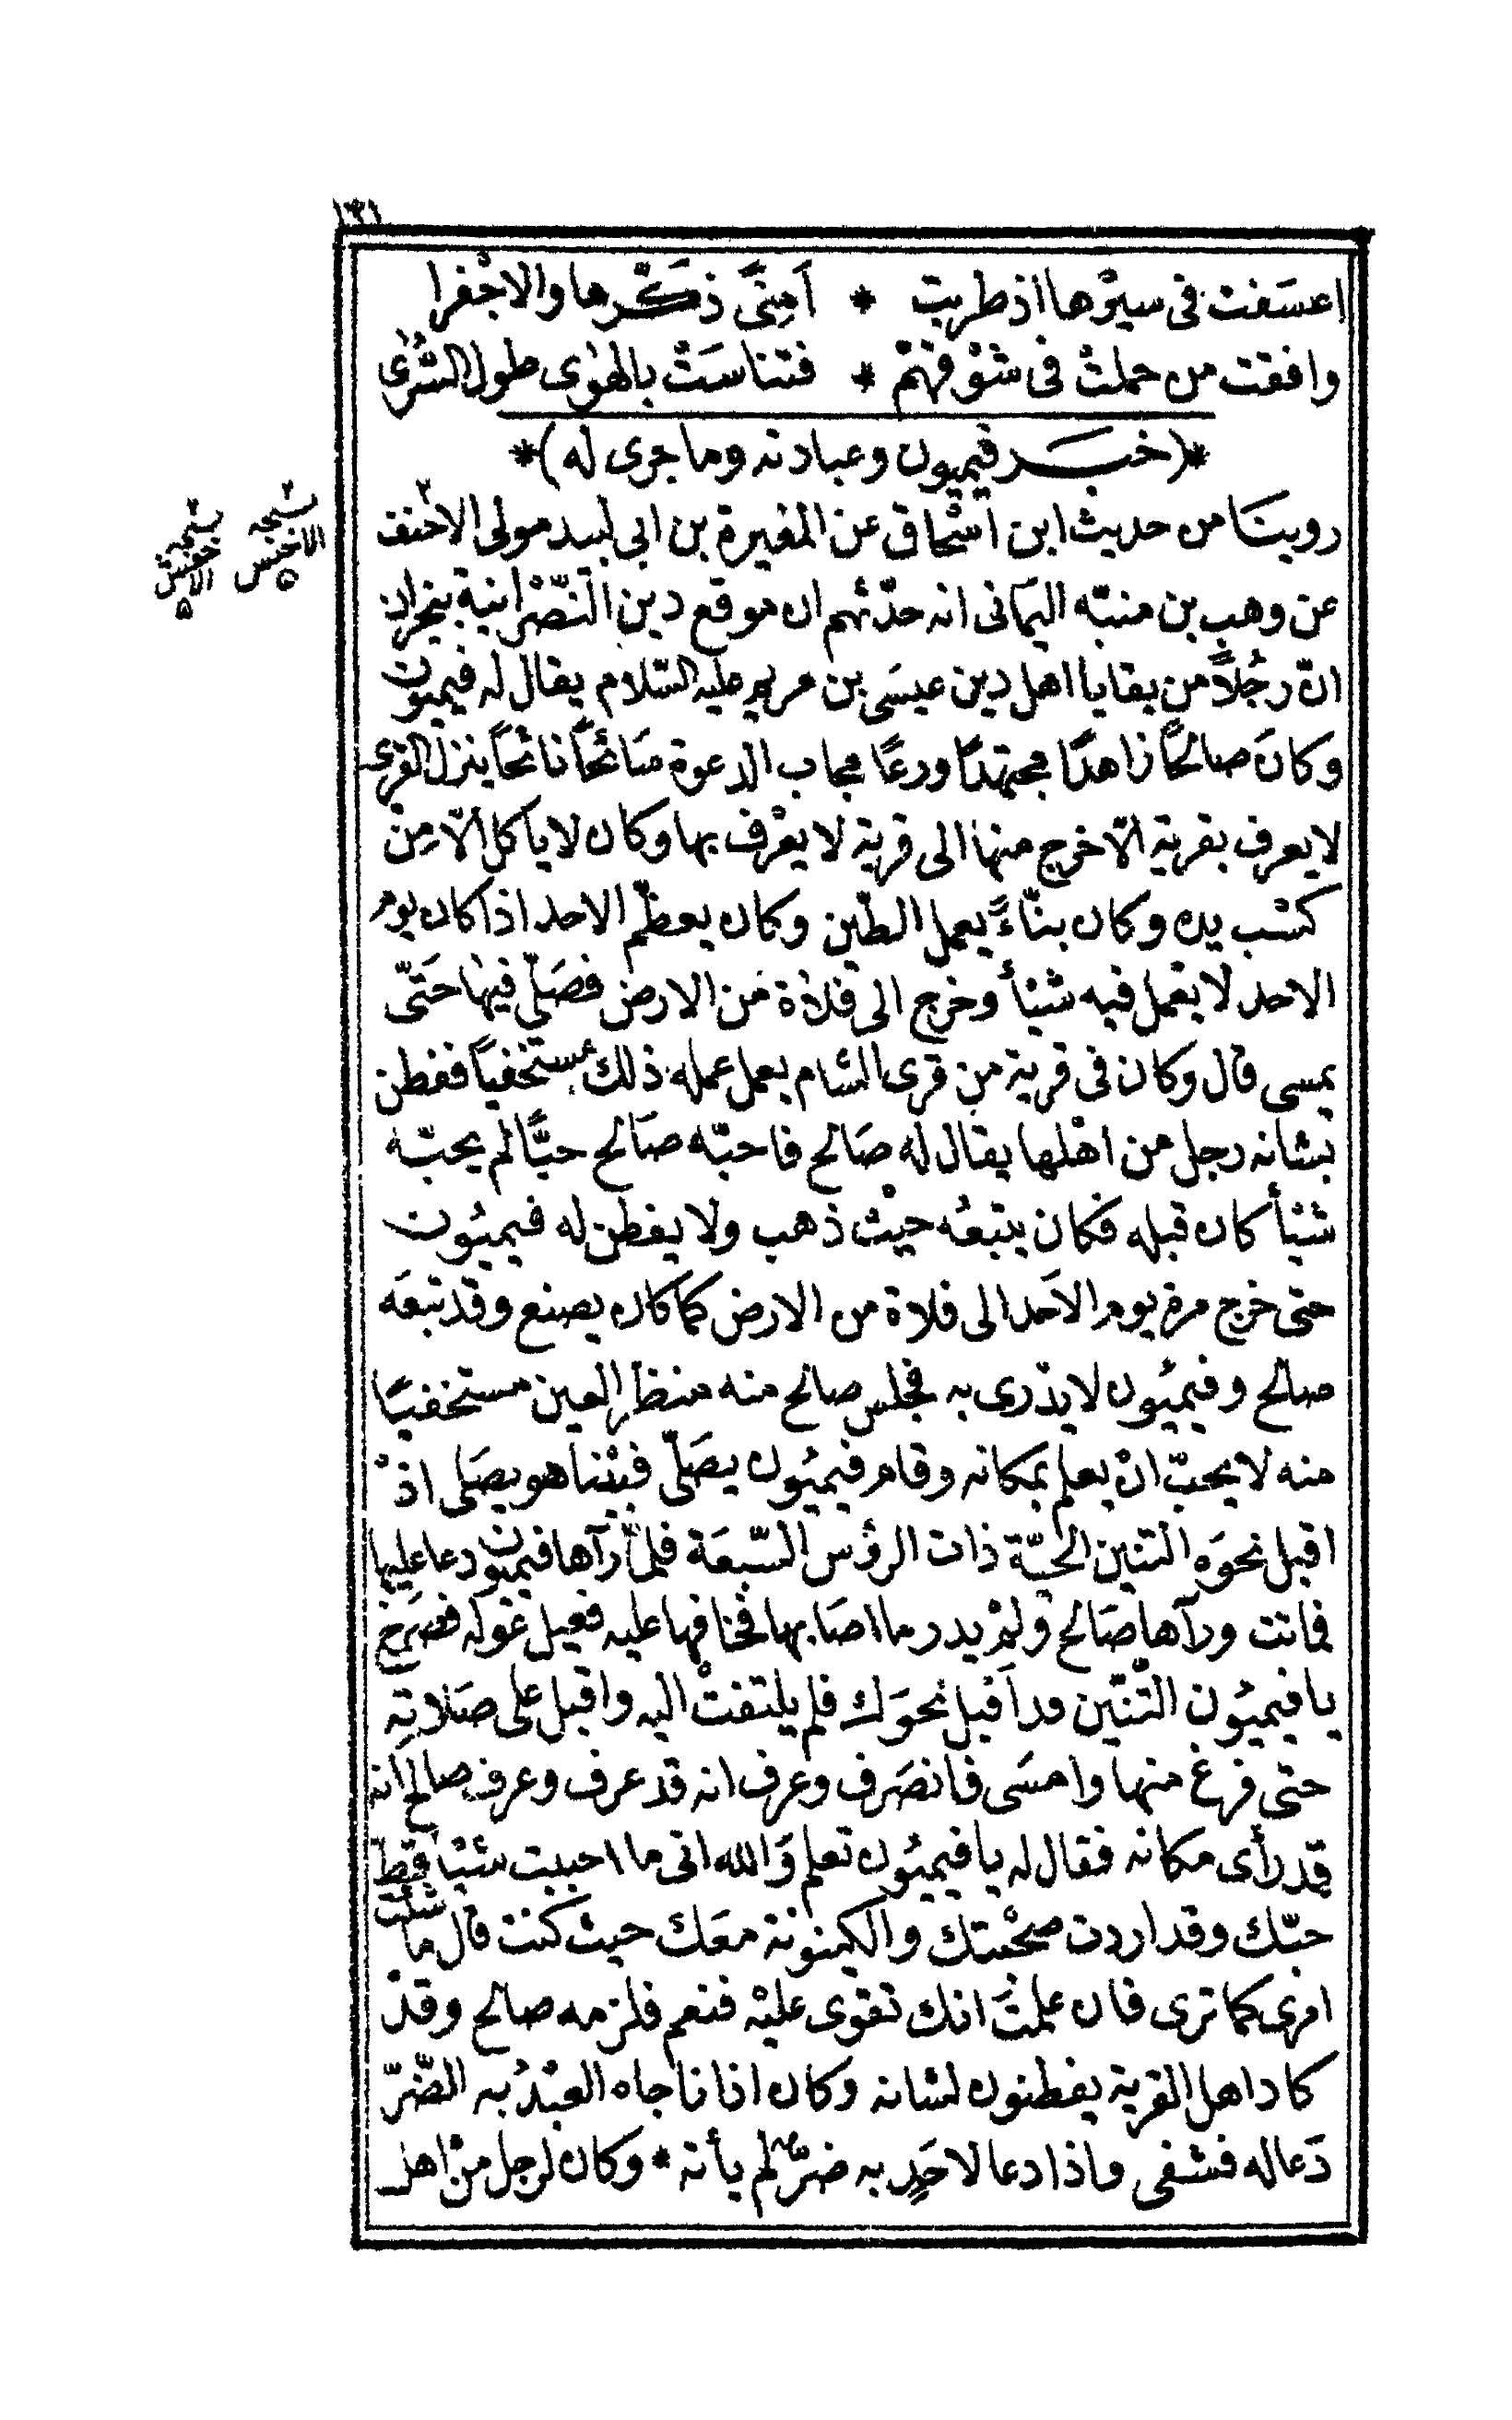 ١٣١
اعسَفت فى سيرْها اذ طربت * اَمِنًى ذكّرها والاجْفرا
وافقت من حملتْ فى شوْقهمْ * فتناسَتْ بالهوٰى طول السُّرٰى
*(خبر فيميون وعبادته وما جرى له)*
روينَا من حديث ابن اسْحاق عن المغيرة بن ابي لبيد مولى الاحنف
عن وهب بن منبّه اليمانى انه حدّثهم ان موقع دين النّصْرانية بنجران
انّ رجُلاً من بقايا اهل دين عيسَى بن مريم عليه السّلام يقال له فيميون
وكانَ صالحًا زاهدًا مجتهدًا ورعًا مجاب الدعوة سَائحًا نائحًا ينزل القرى
لا يعرف بقرية الّا خرج منها الى قرية لا يعْرف بها وكان لا ياكل الّا مِنْ
كسْب يده وكان بنّاءً يعمل الطّين وكان يعظّم الاحد اذا كان يوم
الاحد لا يعمل فيه شيأ وخرج الى فلاة من الارض فصَلّي فيها حَتّى
يمسى قال وكان في قرية من قرى الشام يعمل عمله ذلك مستخفيًا ففطن
بشانه رجل من اهْلها يقال له صَالح فاحبّه صَالح حبًّا لم يحبّه
شيأ كان قبله فكان يتبعُه حيْث ذهب ولا يفطن له فيميُون
حتى خرج مرة يوم الاَحد الى فلاة من الارض كما كان يصنع وقد تبعَه
صالح وفيميُون لا يدْرى به فجلس صالح منه منظر العين مستخفيًا
منه لا يحبّ انْ يعلم بمكانه وقام فيميُون يصَلّى فبيْنا هو يصَلى اذْ
اقبل نحوَه التنين الحيّة ذات الرؤس السّبعَة فلمّا رآها فيميون دعا عليها
فماتت ورآها صَالح ولمْ يدر ما اصَابها فخافها عليه فعيل عَوله فصَرخ
يا فيميُون التّنّين قد اَقبل نحوَك فلم يلتفتْ اليه واقبل على صَلاتِه
حتى فرغ منها وامسَى فانصَرف وعرف انه قد عرف وعرف صالح انه
قد رأى مكانه فقال له يا فيميُون تعلم وَالله انى ما احببت شيْأ قطّ
حبّك وقد اردت صحْبتك والكينونة معَك حيث كنت قال ما شئت
امرى كما ترى فان علمتَ انك تقوى عليْه فنعم فلزمه صالح وقدْ
كاد اهل القرية يفطنون لشانه وكان اذا ناجاه العبْدُ به الضّرّ
دَعا له فشفى واذا دعا لاحَدٍ به ضرّ لم يأته * وكان لرجل منْ اهل
٢
نسخه
الاخنس
٥
٢
نسخه
الاخفش
٥